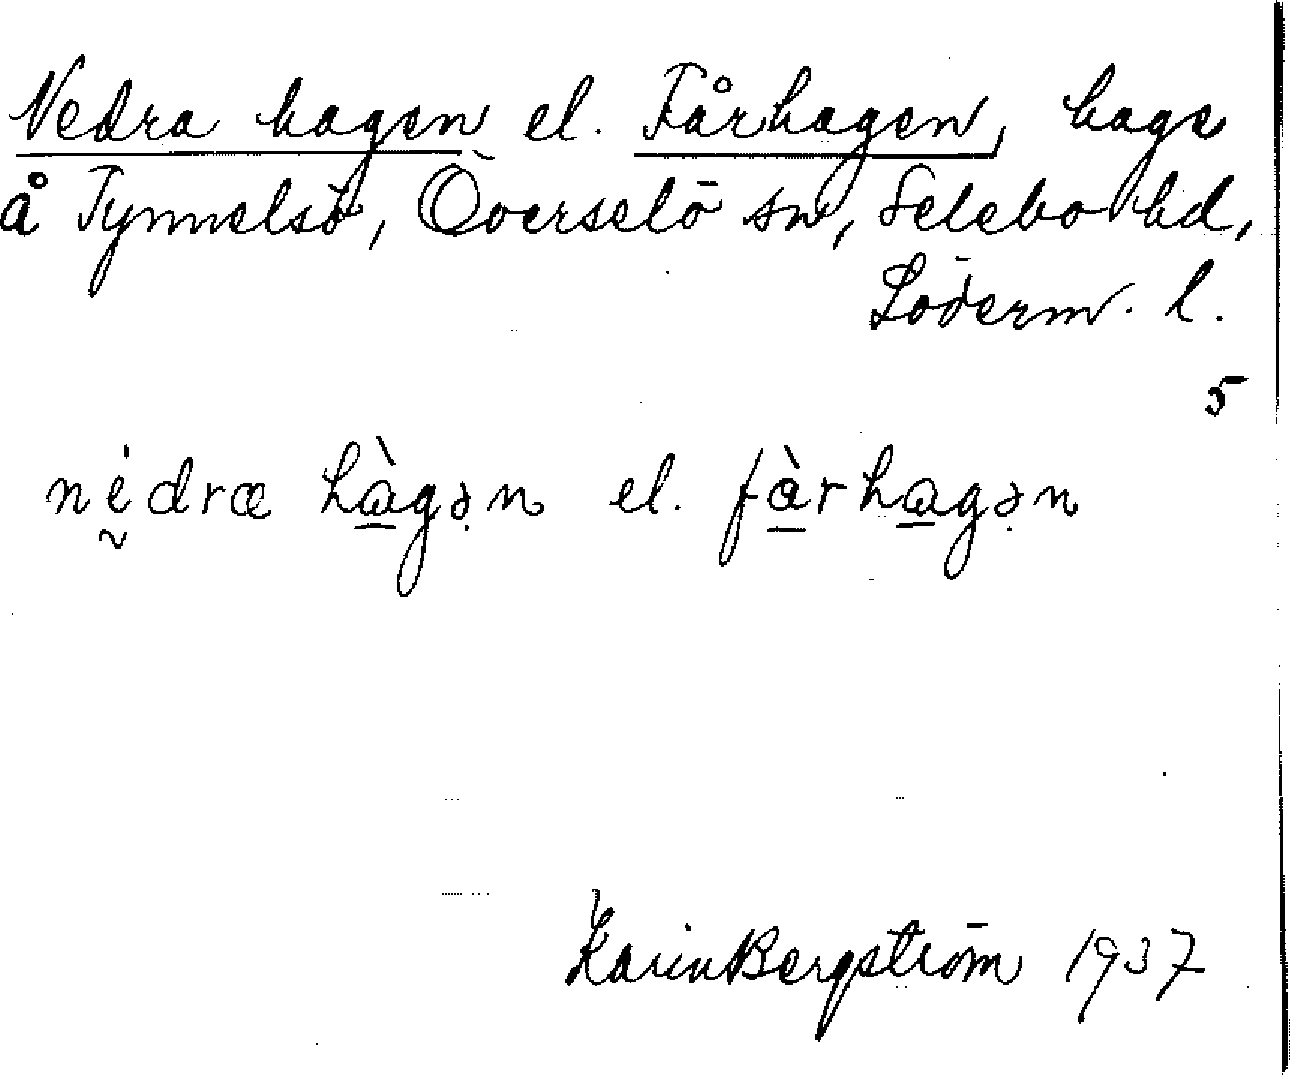 Nedra hagen el. Fårhagen, hage
å Tynnelsö, Överselö sn, Selebo hd,
Söderm. l.
5
nèdra hàgən el. fàrhagən
Karin Bergström 1937